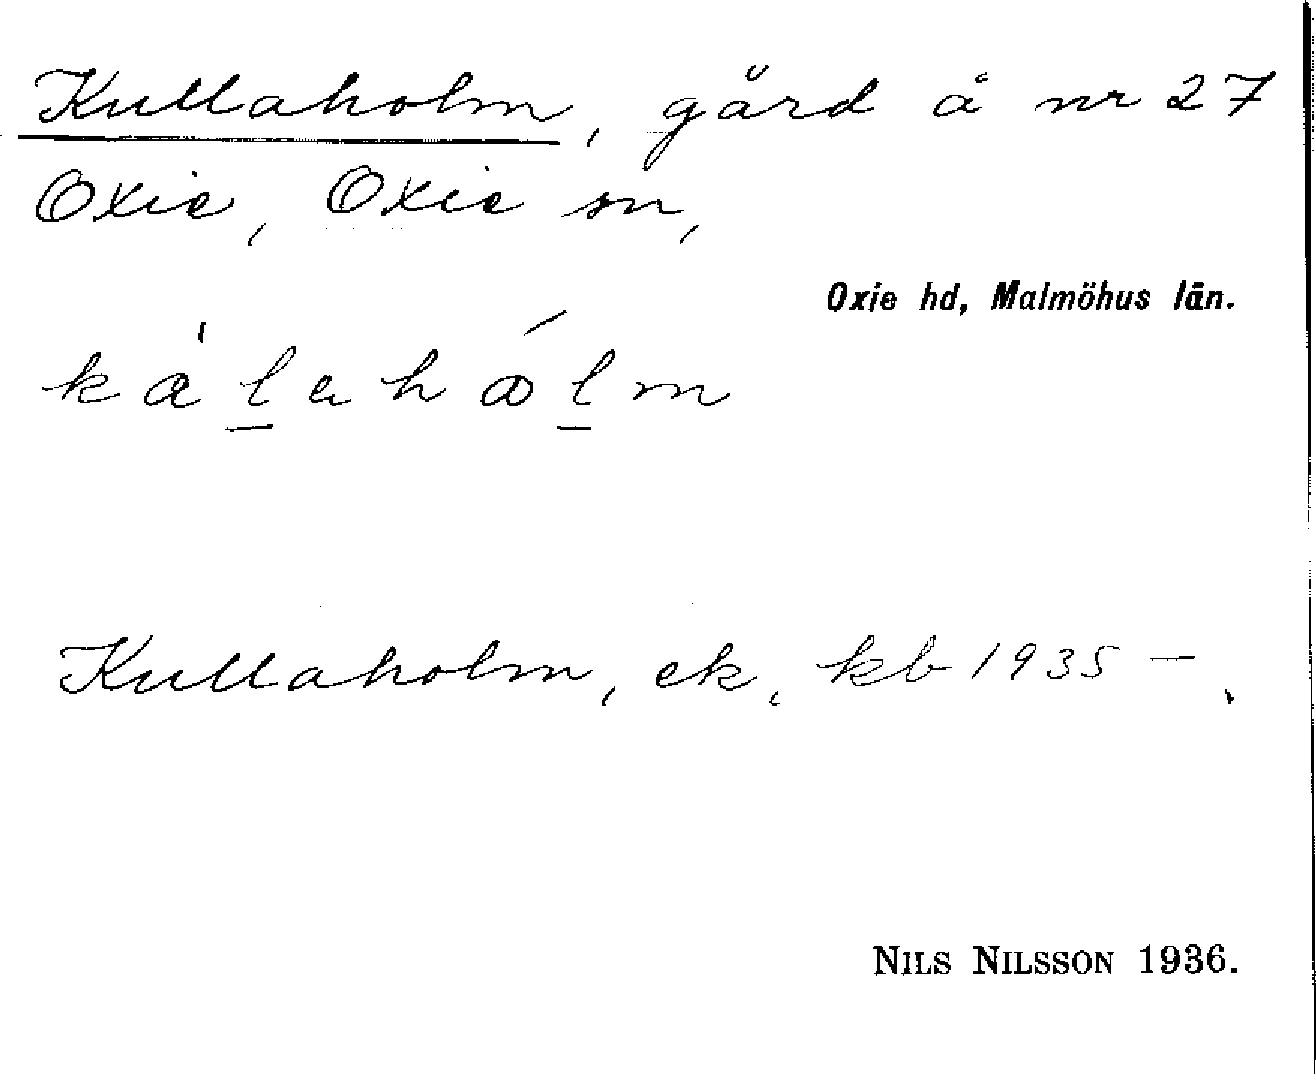 Kullaholm, gård å nr 27
Oxie, Oxie sn,
Oxie hd, Malmöhus län.
Kullaholm, ek, kb 1935 —.
NILS NILSSON 1936.